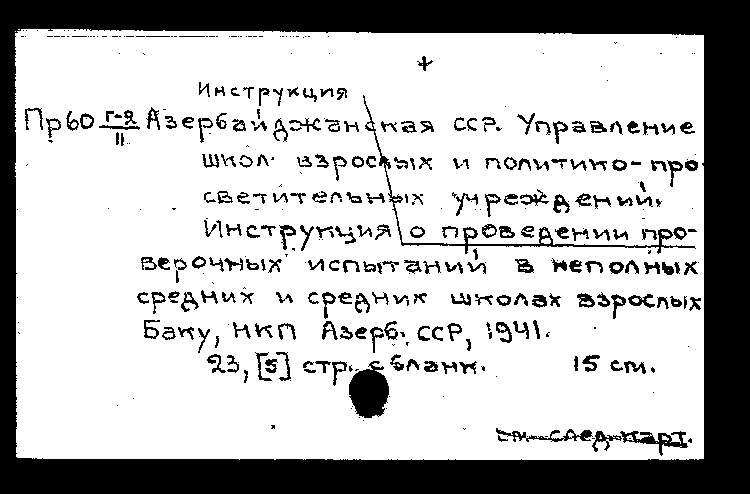 +
Инструкция
Пр60 г-я/II Азербайджанская ССР. Управление
школ взрослых и политико-про-
светительных учреждений.
Инструкция о проведении про-
верочных испытаний в неполных
средних и средних школах взрослых
Баку, НКП Азерб. ССР, 1941.
23, [5] стр. с бланк. 15 см.
см. след. карт.